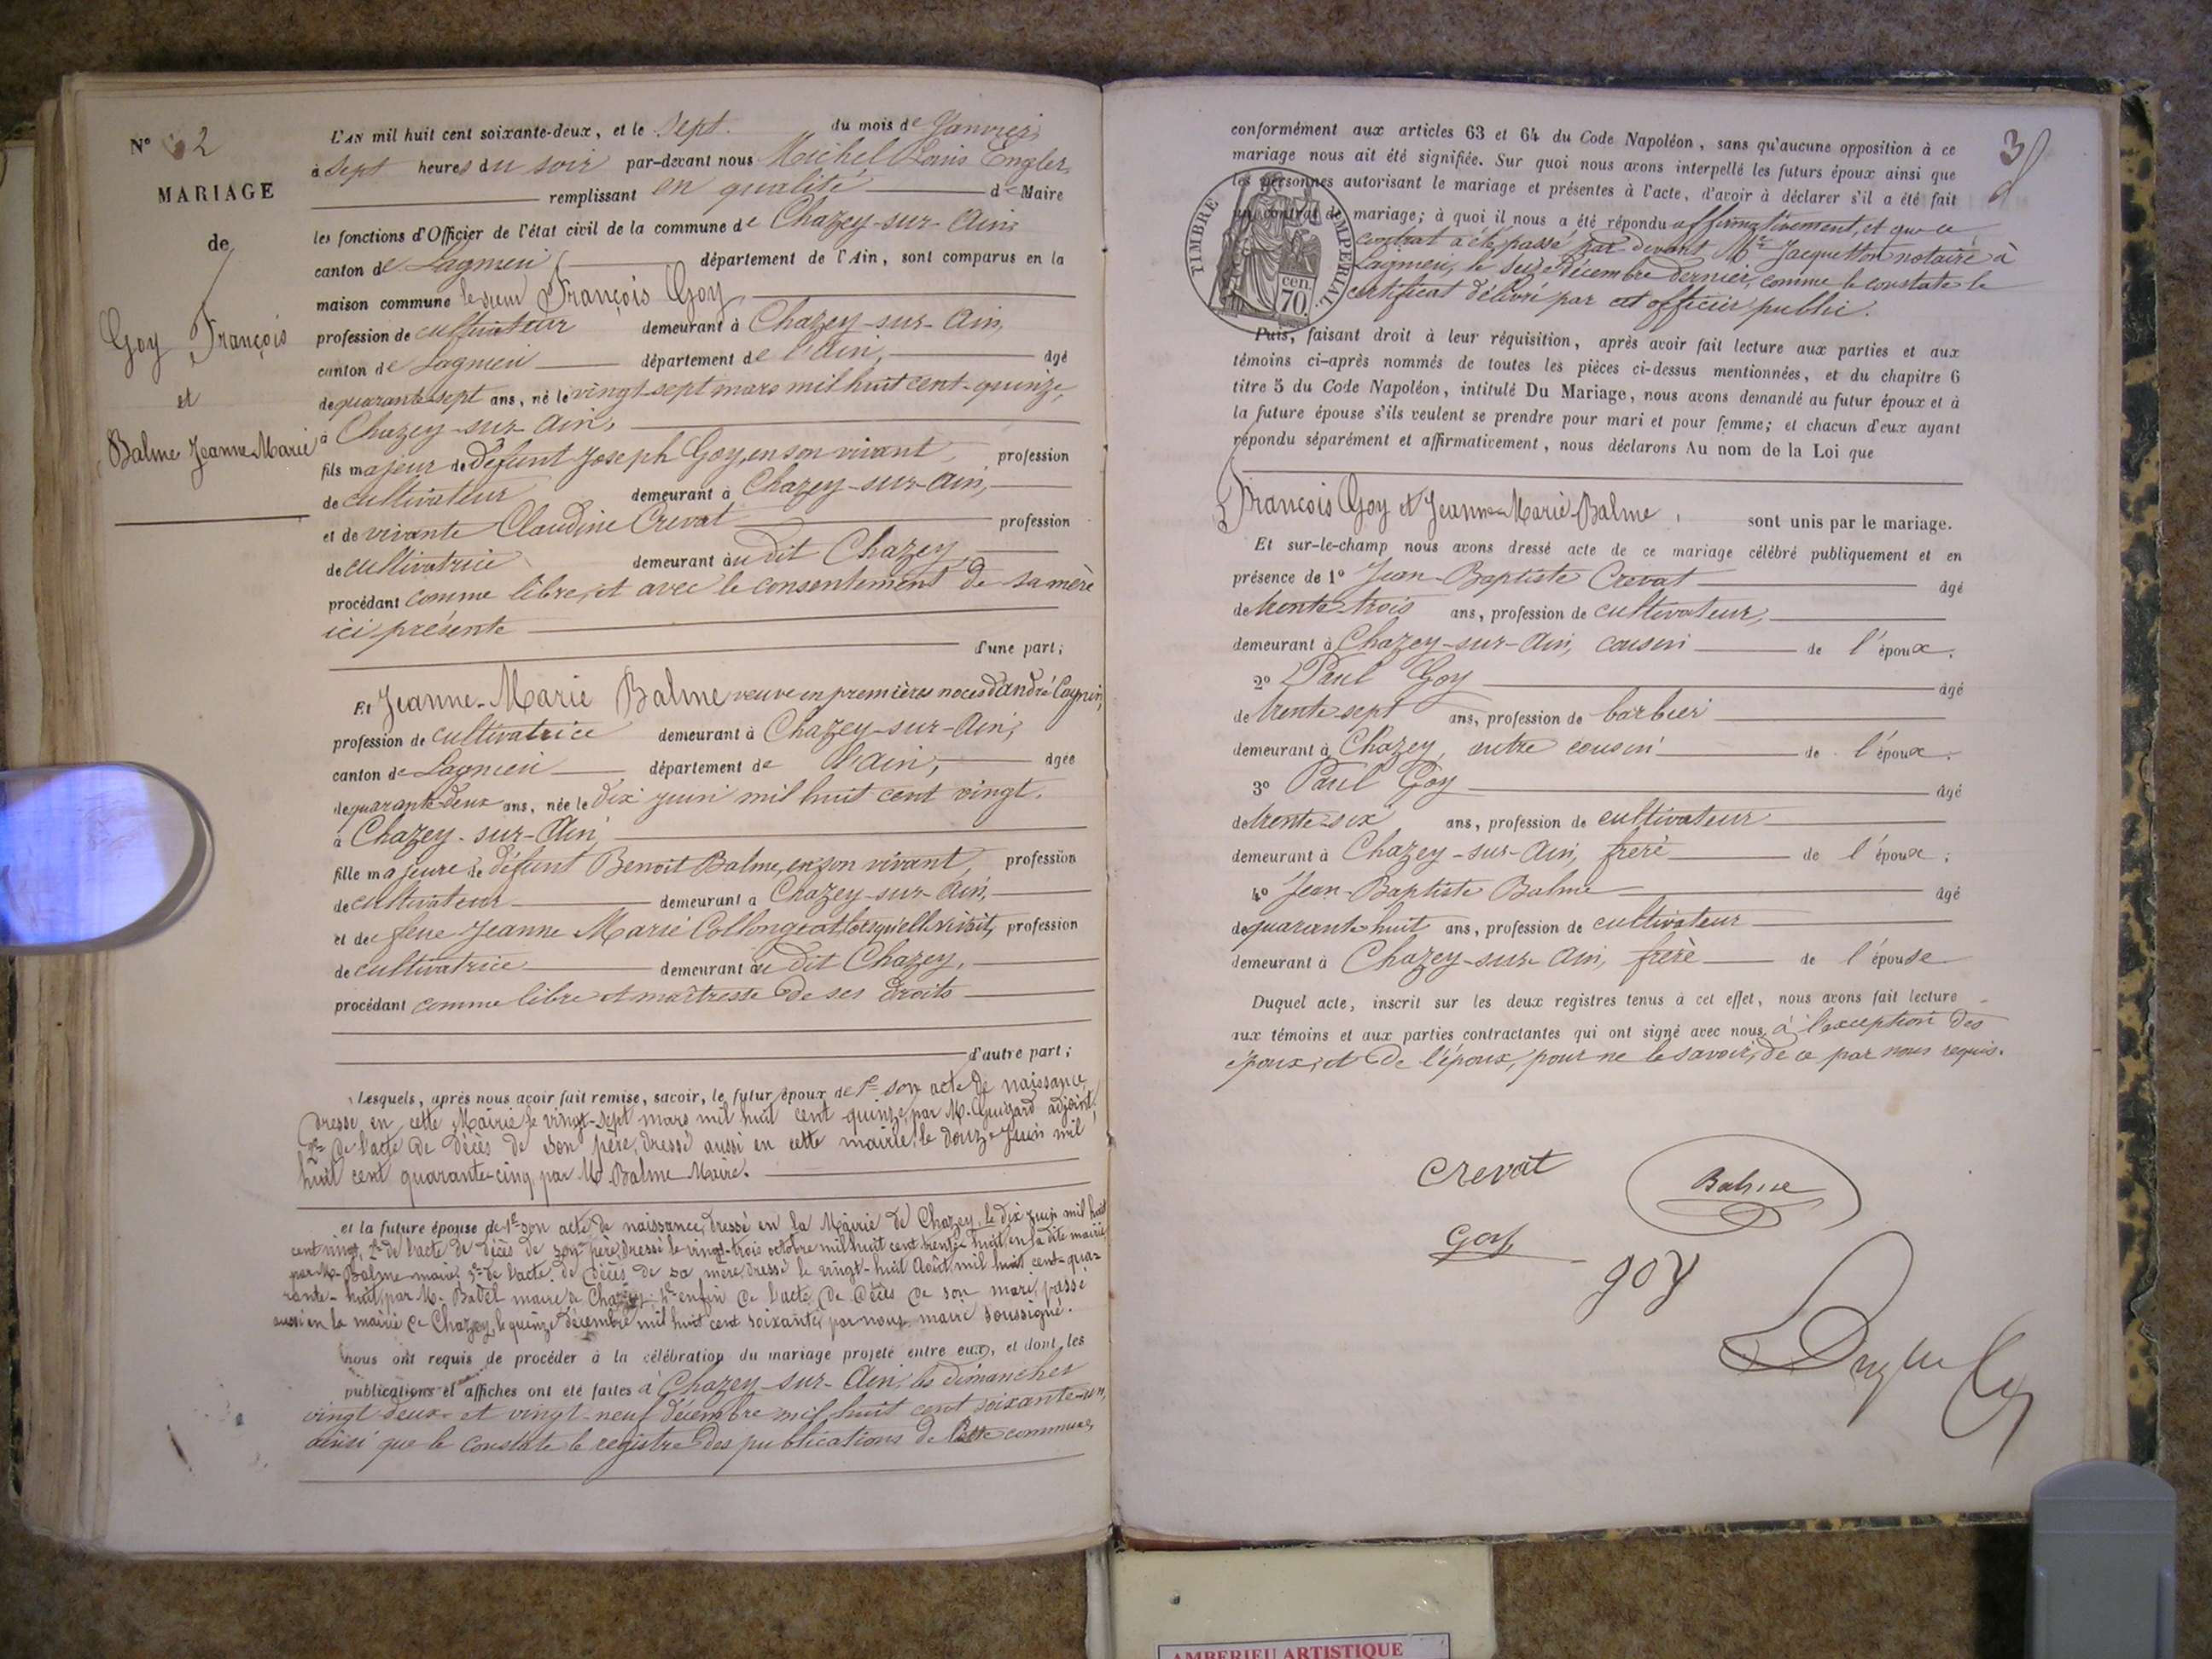 N° 2
MARIAGE
de
Goy François
et
Balme Jeanne-Marie
L'AN mil huit cent soixante-deux, et le sept du mois de Janvier,
à sept heures du soir par-devant nous Michel Louis Engler,
remplissant en qualité de Maire
les fonctions d'Officier de l'état civil de la commune de Chazey-sur-Ain,
canton de Lagnieu département de l'Ain, sont comparus en la
maison commune le sieur François Goy,
profession de cultivateur demeurant à Chazey-sur-Ain,
canton de Lagnieu département de l'Ain, âgé
de quarante-sept ans, né le vingt-sept mars mil huit cent-quinze,
à Chazey-sur-Ain,
fils majeur de défunt Joseph Goy, en son vivant, profession
de cultivateur demeurant à Chazey-sur-Ain,
et de vivante Claudine Crevat profession
de cultivatrice demeurant au dit Chazey,
procédant comme libre, et avec le consentement de sa mère
ici présente
d'une part;
Et Jeanne-Marie Balme veuve en premières noces d'André Cagnin,
profession de cultivatrice demeurant à Chazey-sur-Ain,
canton de Lagnieu département de l'Ain, âgée
de quarante-deux ans, née le dix juin mil huit cent vingt,
à Chazey-sur-Ain,
fille majeure de défunt Benoit Balme, en son vivant, profession
de cultivateur demeurant à Chazey-sur-Ain,
et de feue Jeanne Marie Collongeat lorsqu'elle vivait, profession
de cultivatrice demeurant au dit Chazey,
procédant comme libre et maîtresse de ses droits
d'autre part;
Lesquels, après nous avoir fait remise, savoir, le futur époux de 1° son acte de naissance
dressé en cette Mairie le vingt-sept mars mil huit cent quinze, par M. Guizard adjoint,
2° de l'acte de décès de son père, dressé aussi en cette mairie, le douze Juin mil
huit cent quarante-cinq par M. Balme Maire.
et la future épouse de 1° son acte de naissance, dressé en la Mairie de Chazey, le dix juin mil huit
cent vingt, 2° de l'acte de décès de son père, dressé le vingt-trois octobre mil huit cent trente huit, en la dite mairie,
par M. Balme maire, 3° de l'acte de décès de sa mère, dressé le vingt-huit Août mil huit cent-qua-
rante-huit, par M. Badel maire de Chazey; 4° enfin de l'acte de décès de son mari, passé
aussi en la mairie de Chazey, le quinze décembre mil huit cent soixante, par nous maire soussigné.
nous ont requis de procéder à la célébration du mariage projeté entre eux, et dont les
publications et affiches ont été faites à Chazey-sur-Ain, les dimanches
vingt-deux et vingt-neuf décembre mil huit cent soixante-un,
ainsi que le constate le registre des publications de commune,
3
conformément aux articles 63 et 64 du Code Napoléon, sans qu'aucune opposition à ce
mariage nous ait été signifiée. Sur quoi nous avons interpellé les futurs époux ainsi que
les personnes autorisant le mariage et présentes à l'acte, d'avoir à déclarer s'il a été fait
un contrat de mariage; à quoi il nous a été répondu affirmativement, et que ce
contrat a été passé par devant Me Jacquetton notaire à
Lagnieu, le seize décembre dernier, comme le constate le
certificat délivré par cet officier public.
TIMBRE IMPÉRIAL
cen.
70.
Puis, faisant droit à leur réquisition, après avoir fait lecture aux parties et aux
témoins ci-après nommés de toutes les pièces ci-dessus mentionnées, et du chapitre 6
titre 5 du Code Napoléon, intitulé Du Mariage, nous avons demandé au futur époux et à
la future épouse s'ils veulent se prendre pour mari et pour femme; et chacun d'eux ayant
répondu séparément et affirmativement, nous déclarons Au nom de la Loi que
François Goy et Jeanne-Marie Balme, sont unis par le mariage.
Et sur-le-champ nous avons dressé acte de ce mariage célébré publiquement et en
présence de 1° Jean-Baptiste Crevat âgé
de trente-trois ans, profession de cultivateur,
demeurant à Chazey-sur-Ain, cousin de l'époux.
2° Paul Goy âgé
de trente-sept ans, profession de barbier
demeurant à Chazey, autre cousin de l'époux.
3° Paul Goy âgé
de trente-six ans, profession de cultivateur
demeurant à Chazey-sur-Ain, frère de l'époux;
4° Jean-Baptiste Balme âgé
de quarante-huit ans, profession de cultivateur
demeurant à Chazey-sur-Ain, frère de l'épouse
Duquel acte, inscrit sur les deux registres tenus à cet effet, nous avons fait lecture
aux témoins et aux parties contractantes qui ont signé avec nous, à l'exception des
époux, et de l'époux, pour ne le savoir, de ce par nous requis.
Crevat
Balme
Goy
goy
AMBERIEU ARTISTIQUE